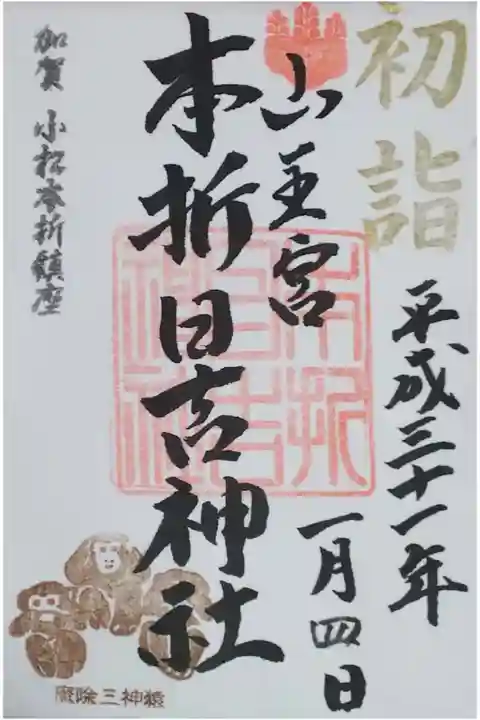 初詣
平成三十一年
一月四日
山王宮
本折日吉神社
本折
日吉
神社
加賀 小松本折鎮座
厄除三神猿